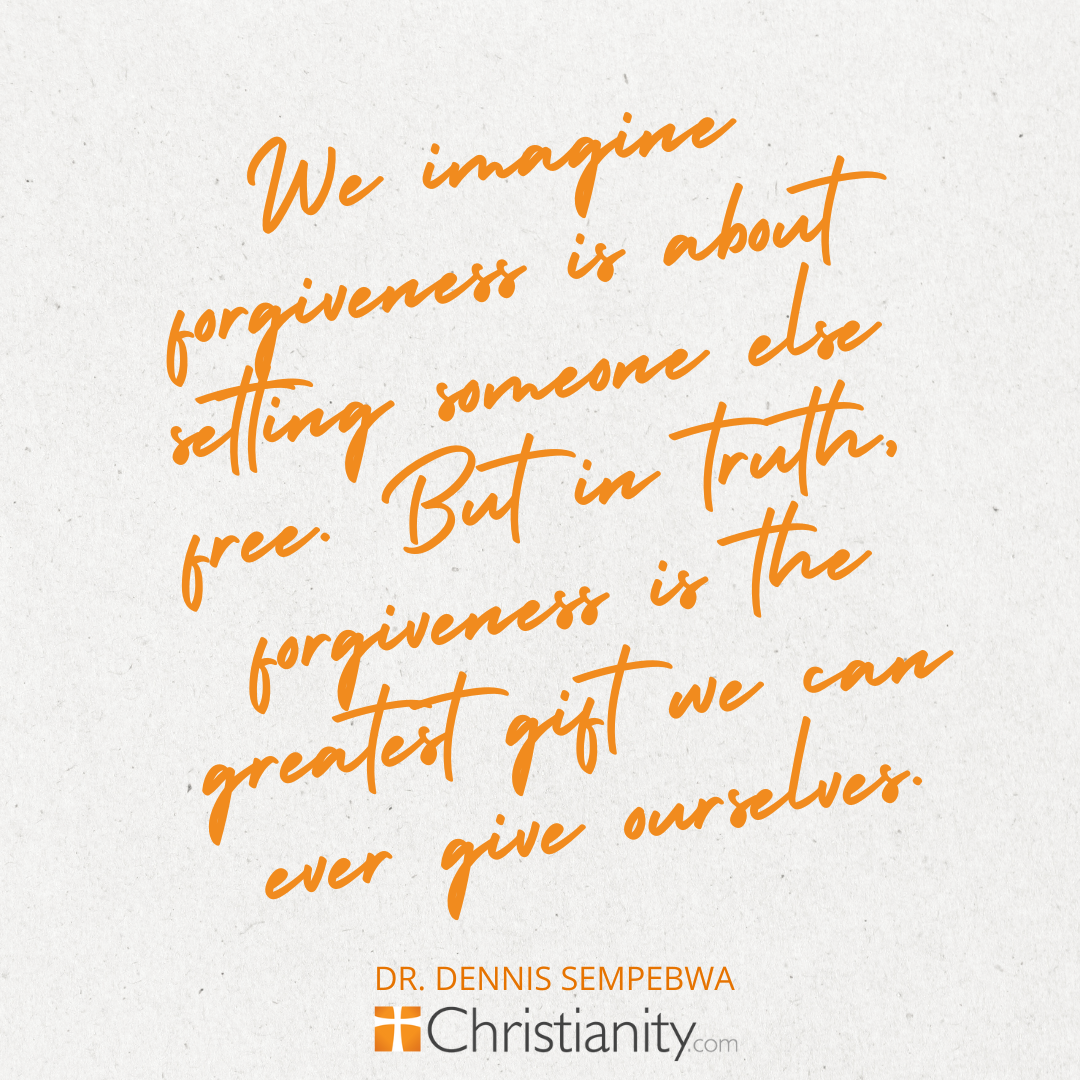 We imagine
forgiveness is about
setting someone else
free. But in truth,
forgiveness is the
greatest gift we can
ever give ourselves.
DR. DENNIS SEMPEBWA
Christianity.com